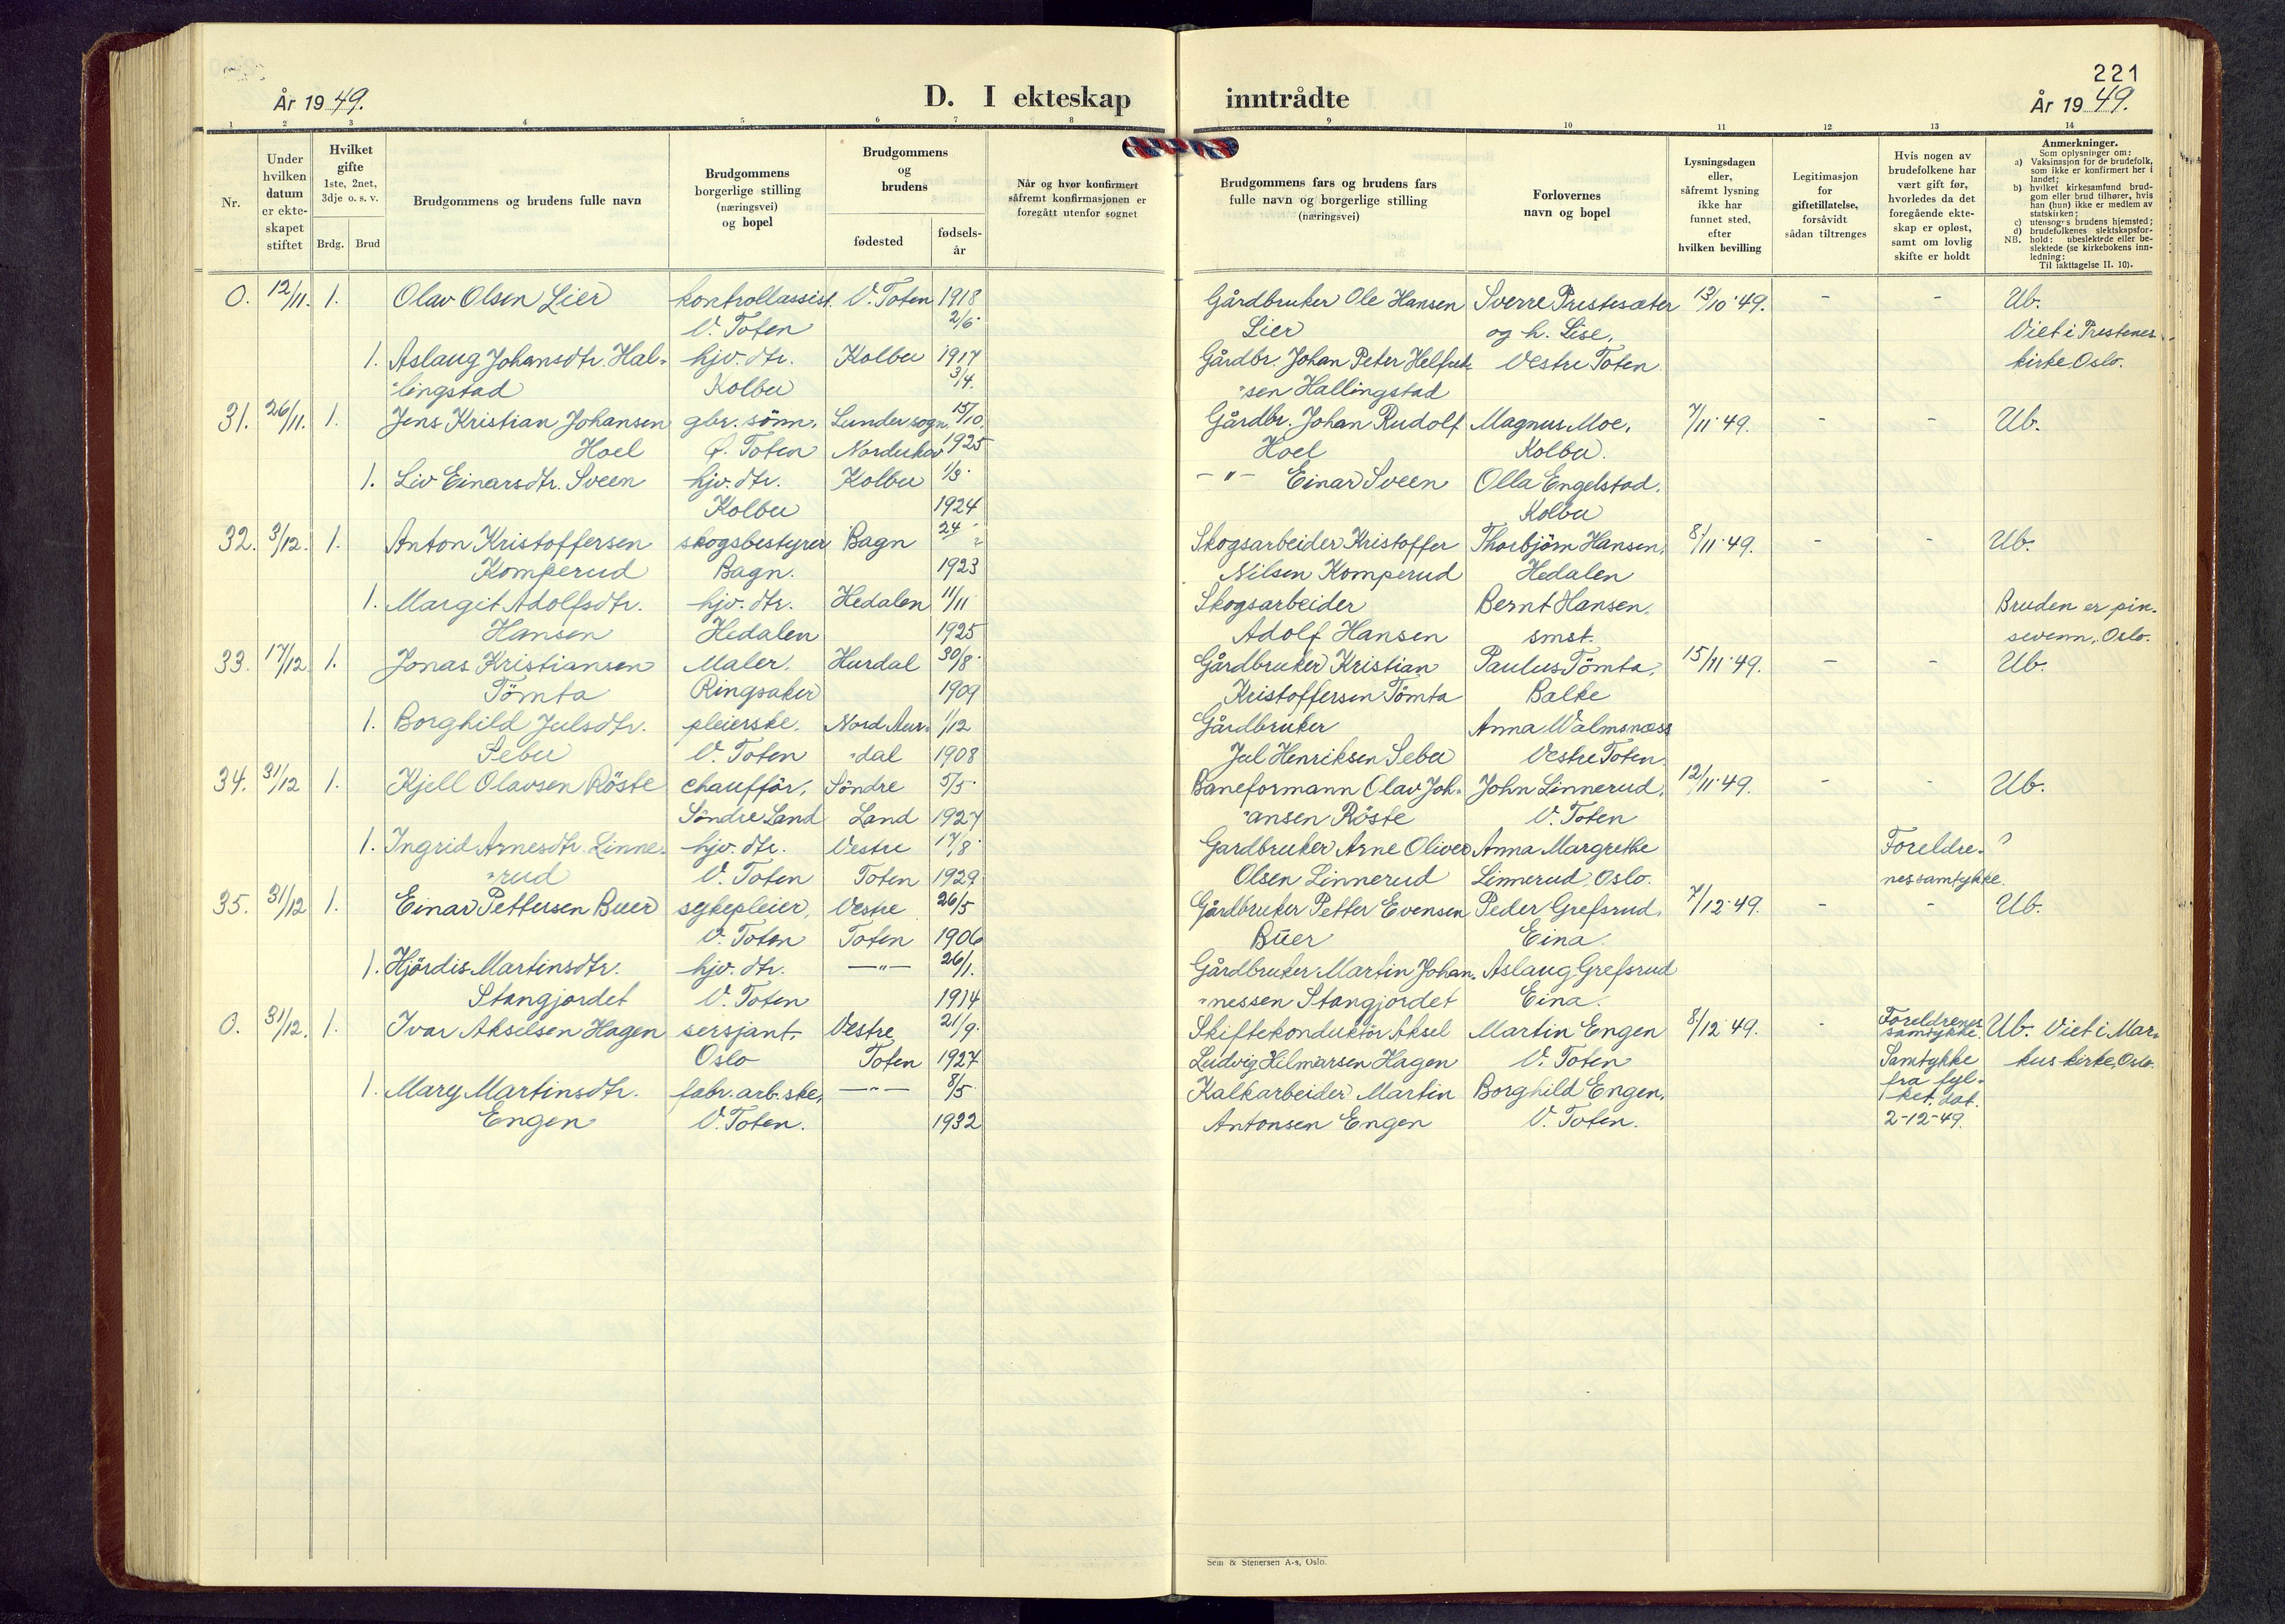 År 1949.
D. I ekteskap
inntrådte
221
År 1949.
1 2 3 4 5 6 7 8 9 10 11 12 13 14
Nr.
Under
hvilken
datum
er ekte-
skapet
stiftet
Hvilket
gifte
1ste, 2net,
3dje o. s. v.
Brdg. Brud
Brudgommens og brudens fulle navn
Brudgommens
borgerlige stilling
(næringsvei)
og bopel
Brudgommens
og
brudens
fødested
fødsels-
år
Når og hvor konfirmert
såfremt konfirmasjonen er
foregått utenfor sognet
Brudgommens fars og brudens fars
fulle navn og borgerlige stilling
(næringsvei)
Forlovernes
navn og bopel
Lysningsdagen
eller,
såfremt lysning
ikke har
funnet sted,
efter
hvilken bevilling
Legitimasjon
for
giftetillatelse,
forsåvidt
sådan tiltrenges
Hvis nogen av
brudefolkene har
vært gift før,
hvorledes da det
foregående ekte-
skap er opløst,
samt om lovlig
skifte er holdt
Anmerkninger.
Som oplysninger om:
a) Vaksinasjon for de brudefolk,
som ikke er konfirmert her i
landet;
b) hvilket kirkesamfund brud-
gom eller brud tilhører, hvis
han (hun) ikke er medlem av
statskirken;
c) utensogns brudens hjemsted;
d) brudefolkenes slektskapsfor-
hold: ubeslektede eller be-
slektede (se kirkebokens inn-
ledning:
NB. Til iakttagelse II. 10).
0. 12/11. 1. Olav Olsen Lier kontrollassist. V. Toten 1918 Gårdbruker Ole Hansen Sverre Prestesæter 13/10-49. - - Ub.
V. Toten 2/6. Lier og h. Lise, Viet i Prestenes
1. Aslaug Johansdtr. Hal- hjv. dtr. Kolbu 1917 Gårdbr. Johan Peter Helfred- Vestre Toten kirke Oslo.
"lingstad Kolbu 3/4. "sen Hallingstad
31. 26/11. 1. Jens Kristian Johansen gbr. sönn. Lunder sogn. 15/10. Gårdbr. Johan Rudolf Magnus Moe, 7/11-49. - - Ub.
Hoel Ø. Toten Norderhov 1925 Hoel Kolbu.
1. Liv Einarsdtr. Sveen hjv. dtr. Kolbu 1/3. - " - Einar Sveen Olla Engelstad,
Kolbu 1924 Kolbu
32. 3/12. 1. Anton Kristoffersen skogsbestyrer Bagn 24 Skogsarbeider Kristoffer Thorbjörn Hansen, 8/11-49. - - Ub.
Komperud Bagn. 1923 Nilsen Komperud Hedalen
1. Margit Adolfsdtr. hjv. dtr. Hedalen 11/11 Skogsarbeider Bernt Hansen. Bruden er pin-
Hansen Hedalen 1925 Adolf Hansen smst. sevenn, Oslo.
33. 17/12 1. Jonas Kristiansen Maler. Hurdal 30/8. Gårdbruker Kristian Paulus Tömta, 15/11-49. - - Ub.
Tömta Ringsaker 1909 Kristoffersen Tömta Balke
1. Borghild Julsdtr. pleierske. Nord Aur- 1/12 Gårdbruker Anna Walmsnæss
Sebu V. Toten "dal 1908 Jul Henriksen Sebu Vestre Toten
34. 31/12 1. Kjell Olavsen Röste chaufför, Söndre 5/5. Baneformann Olav Joh- John Linnerud, 12/11-49. - - Ub.
Söndre Land Land 1927 "ansen Röste V. Toten
1. Ingrid Arnesdtr. Linne- hjv. dtr. Vestre 17/8. Gardbruker Arne Oliver Anna Margrethe Foreldre- ?
"rud V. Toten Toten 1929 Olsen Linnerud Linnerud, Oslo. nes samtykke.
35. 31/12 1. Einar Pettersen Buer sykepleier, Vestre 26/5 Gårdbruker Petter Evensen Peder Grefsrud, 7/12-49. - - Ub.
V. Toten Toten 1906 Buer Eina.
1. Hjördis Martinsdtr. hjv. dtr. - " - 26/1. Gårdbruker Martin Johan- Aslaug Grefsrud
Stangjordet V. Toten 1914 "nessen Stangjordet Eina.
0. 31/12. 1. Ivar Akselsen Hagen sersjant, Vestre 21/9. Skiftekonduktör Aksel Martin Engen 8/12 49. - Foreldrenes samtykke. Ub. Viet i Mar-
Oslo Toten 1927 Ludvig Hilmarsen Hagen V. Toten Samtykke kus kirke, Oslo.
1. Mary Martinsdtr. fabr. arb. ske, - " - 8/5 Kalkarbeider Martin Borghild Engen, fra fyl-
ket. dat.
Engen V. Toten. 1932 Antonsen Engen V. Toten. 2-12-49.
Sem & Stenersen A-s, Oslo.